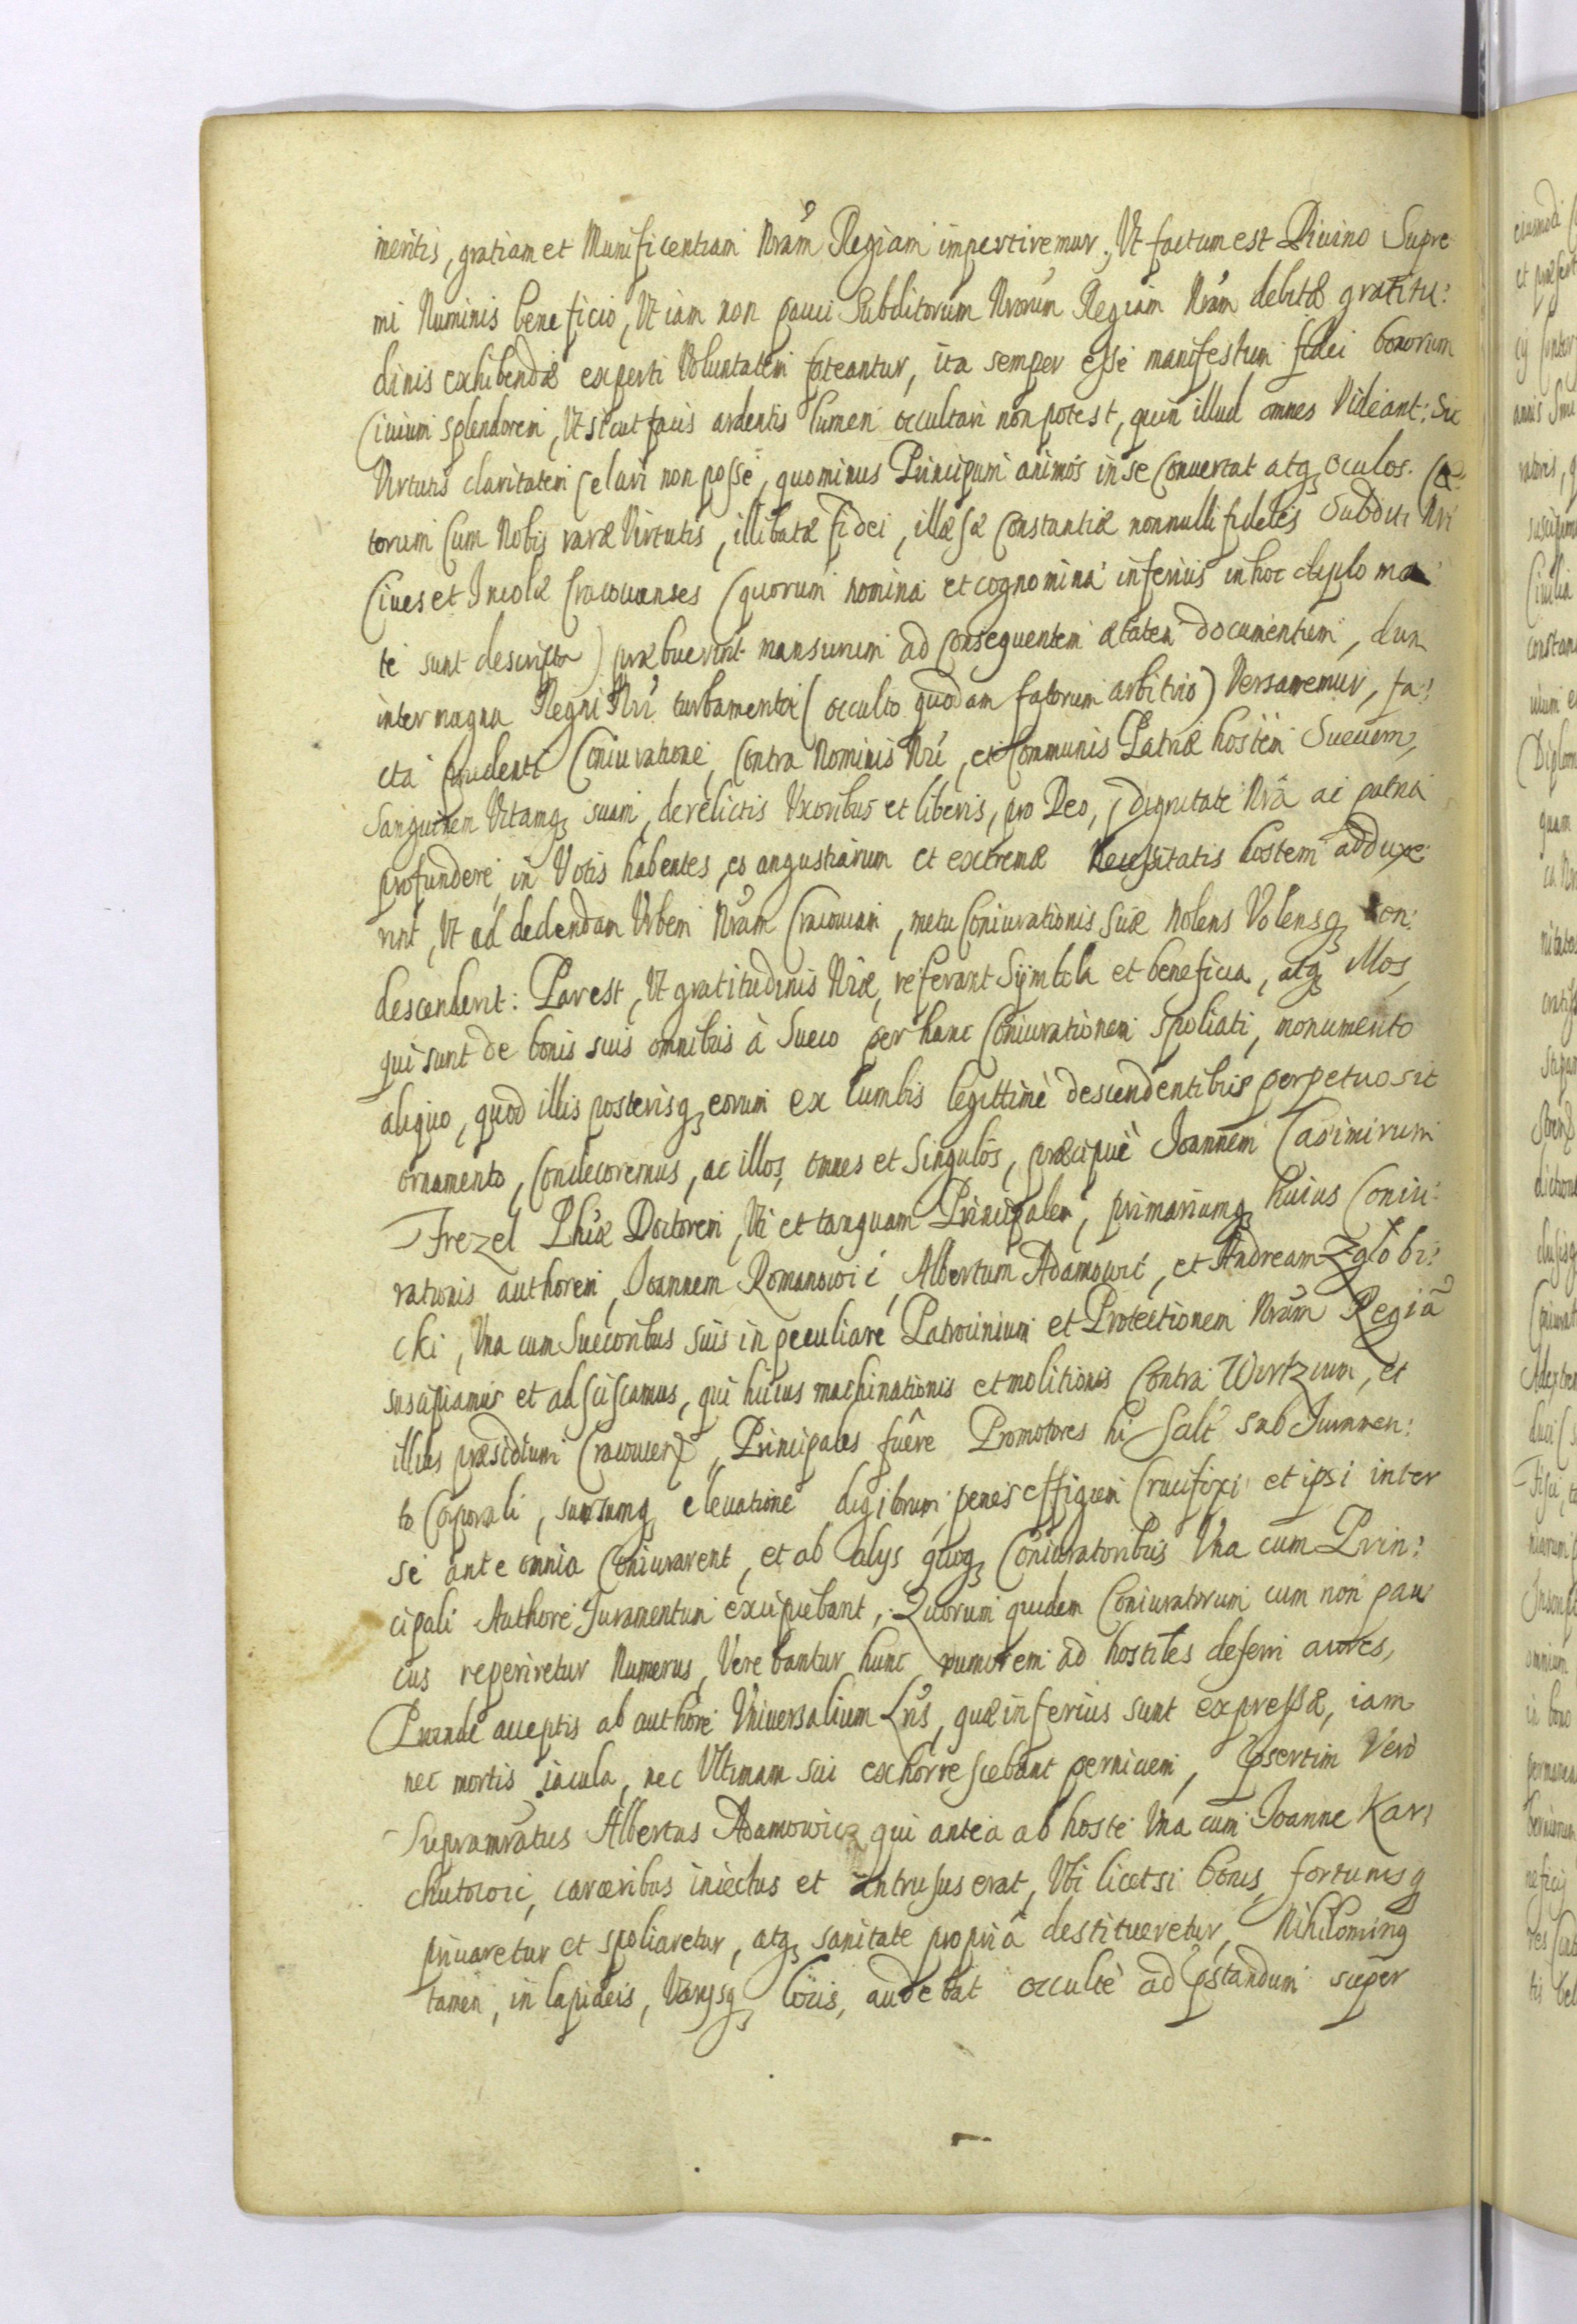 meritis, gratiam et Munificentiam Nrãm Regiam impertiremur, Ut factum est Diuino Supre
mi Numinis beneficio, Ut iam non pauci Subditorum Nrorũm Regiam Nrãm debitæ gratitu:
dinis exhibendæ experti Voluntatem fateantur, ita semper esse manifestum fidei bonorum
Ciuium splendorem, Ut sicut facis ardentis lumen occultari non potest, quin illud omnes Videant: Sic
Virtutis claritatem celari non posse, quominus Principum animos in se Conuertat atq oculos. Cæ:
torum Cum Nobis raræ Virtutis, illibatæ fidei, illæsæ Constantiæ nonnulli fideles Subditi Nri
Ciues et Incolæ Cracouienses (quorum nomina et cognomina inferius in hoc diploma
te sunt descripta) præbuerint mansurum ad Consequentem ætatem documentum, dum
inter magna Regni Nri turbamenta (occulto quodam fatorum arbitrio) Versaremur, fa:
cta prudenti Coniuratione, Contra Nominis Nri, et Communis Patriæ hostem Sueuum,
Sanguinem Vitamq suam, derelictis Uxoribus et liberis, pro Deo, dignitate Nrã ac patria
profundere in Votis habentes, eo angustiarum et extremæ necessitatis hostem adduxe:
rint, Ut ad dedendam Urbem Nrãm Cracouiam, metu Coniurationis suæ nolens Volensq con:
descenderit: Par est, Ut gratitudinis Nræ, referant Symbola et beneficia, atq illos,
qui sunt de bonis suis omnibus à Sueco per hanc Coniurationem spoliati, monumento
aliquo, quod illis posterisq eorum ex lumbis legittimè descendentibus perpetuo sit
ornamento, Condecoremus, ac illos, omnes et Singulos, præcipuè Joannem Casimirum
Frezel Phiæ Doctorem, Uti et tanquam Principalem, primariumq huius Coniu:
rationis authorem, Joannem Romanowic, Albertum Adamowic, et Andream Zglobi:
cki, Una cum Successoribus suis in peculiare Patrocinium et Protectionem Nrãm Regiã
suscipiamus et adsciscamus, qui huius machinationis et molitionis Contra Wirtzium, et
illius præsidium Cracouien, Principales fuêre Promotores hi Scilt sub Juramen:
to Corporali, sursumq eleuatione digitorum penes effigiem Crucifixi et ipsi inter
se ante omnia Coniurarent, et ab alys quoq Coniuratoribus Una cum Prin:
cipali Authore Juramentum excipiebant, Quorum quidem Coniuratorum cum non pau
cus reperiretur Numerus, Verebantur hunc rumorem ad hostiles deferri aures,
Proinde acceptis ab authore Uniuersalium Lris, quæ inferius sunt expressæ, iam
nec mortis iacula, nec Ultimam sui exhorrescebant perniciem, Psertim Verò
Supramratus Albertus Adamowicz qui antea ab hoste Una cum Joanne Kar:
chutowic, carceribus iniectus et intrusus erat, Ubi licet si bonis, fortunisq
priuaretur et spoliaretur, atq sanitate propriâ destitueretur, Nihilominq
tamen, in lapideis, Varysq locis, audebat occultè ad pstandum super